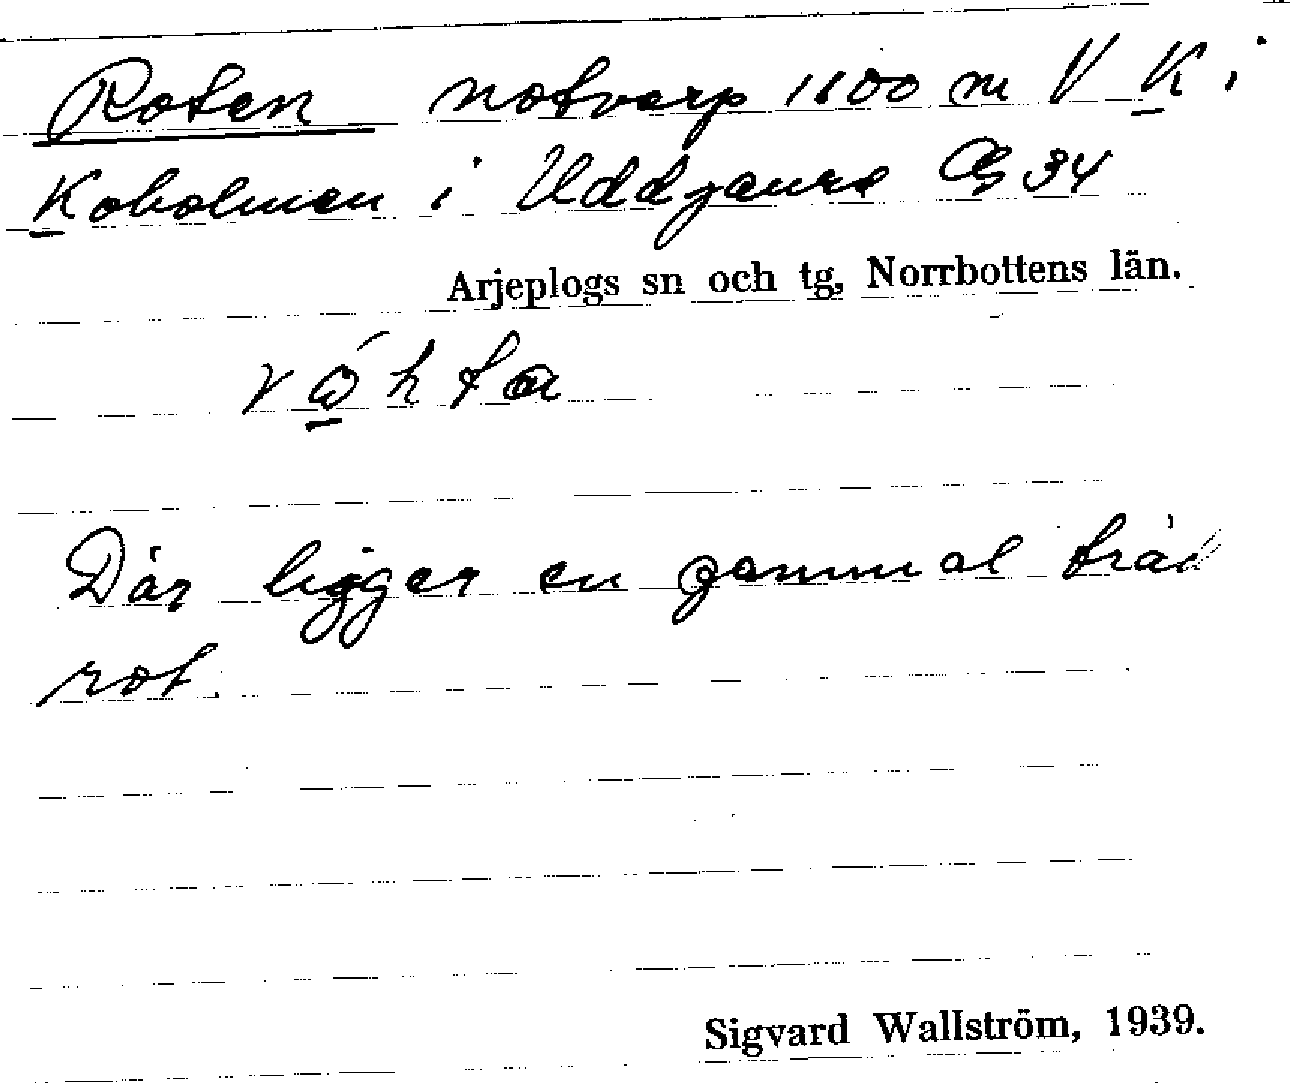 Roten notvarp 1600 m V K i
Koholmen i Uddjaure Cg 34
Arjeplogs sn och tg, Norrbottens län.
Där ligger en gammal träd
rot.
Sigvard Wallström, 1939.